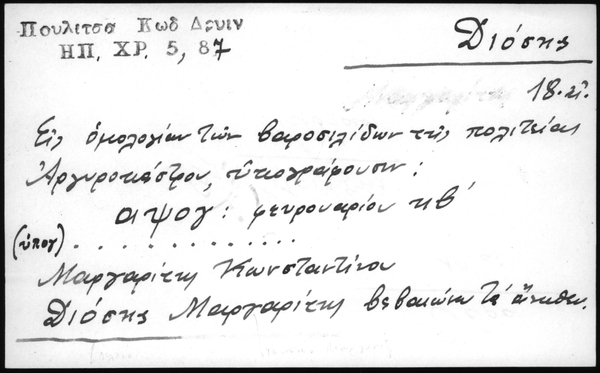 Πουλιτσα Κωδ Δρυιν
ΗΠ. ΧΡ. 5, 87
Διόσης
18. αἰ.
Εἰς ὁμολογίαν τῶν βαροσιλίδων τῆς πολιτείας
Ἀργυροκάστρου, ὑπογράφουσιν:
αψογ: φευρουαρίου κβ'
(ὑπογ) . . . . . . . . . . . . .
Μαργαρίτης Κωνσταντίνου
Διόσης Μαργαρίτης βεβαιώνω τὰ ἄνωθεν.